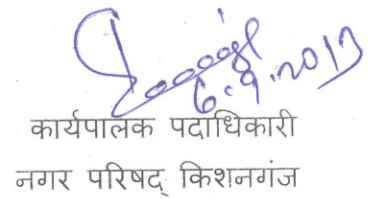 6.9.2017
कार्यपालक पदाधिकारी
नगर परिषद् किशनगंज